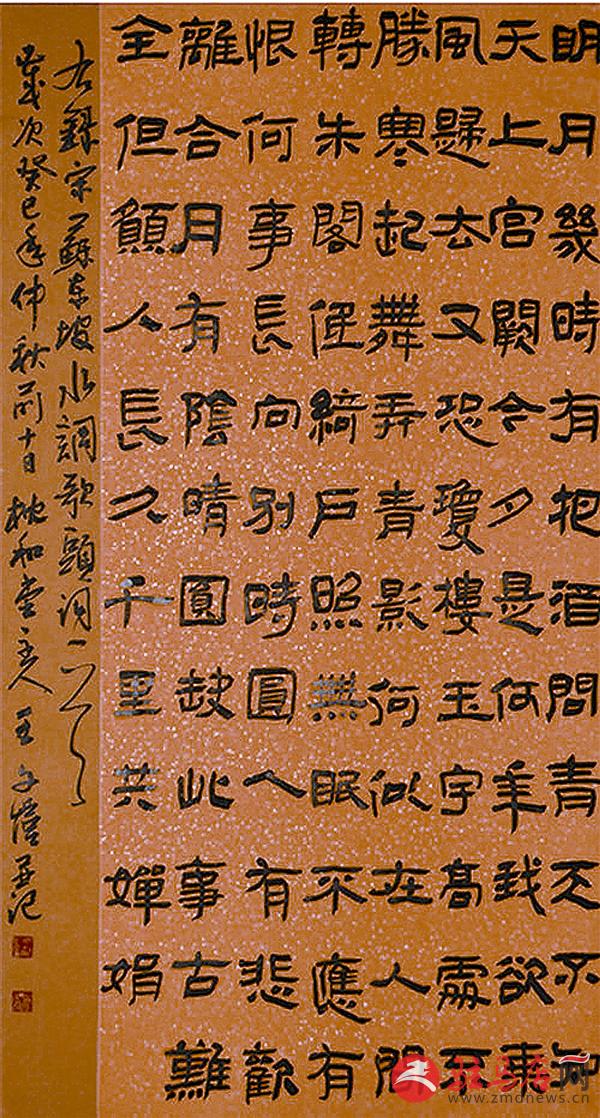 明月幾時有把酒問青天不知
天上宮闕今夕是何年我欲乘
風歸去又恐瓊樓玉宇高處不
勝寒起舞弄青影何似在人間
轉朱閣低綺戶照無眠不應有
恨何事長向別時圓人有悲歡
離合月有陰晴圓缺此事古難
全但願人長久千里共嬋娟
右錄宋蘇東坡水調歌頭詞一首
歲次癸巳年仲秋前十日和堂主人王文并记
驻马店网
www.zmdnews.cn